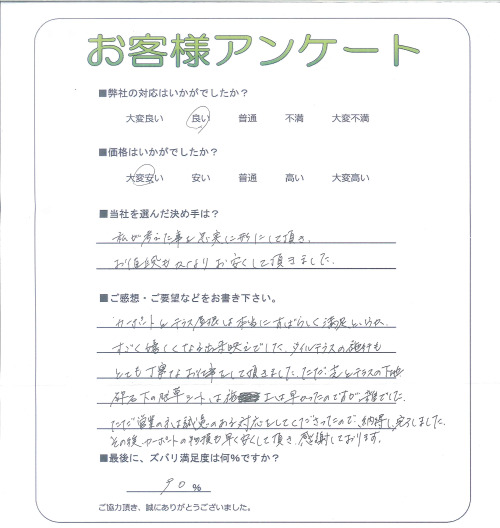 お客様アンケート
■弊社の対応はいかがでしたか？
大変良い 良い 普通 不満 大変不満
■価格はいかがでしたか？
大変安い 安い 普通 高い 大変高い
■当社を選んだ決め手は？
私が考えた事を忠実に形にして頂き、
お値段も よりお安くして頂きました。
■ご感想・ご要望などをお書き下さい。
カーポートとテラス屋根は本当にすばらしく満足というか、
すごく嬉しくなる出来映えでした。タイルテラスの施行も
とても丁寧なお仕事をして頂きました。ただ、 とテラスの下地
砕石下の防草シートは 早かったのですが雑でした。
ただ営業の は誠意のある対応をしてくださったので、納得し完了しました。
その後、カーポートの も早く安くして頂き、感謝しております。
■最後に、ズバリ満足度は何%ですか？
90 %
ご協力頂き、誠にありがとうございました。